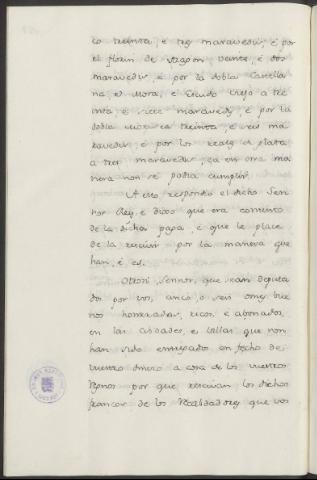 co treinta, e tres maravedis, e por
el florin de Aragon veinte, e dos
maravedis, e por la dobla Castella
na, e Mora, e Escudo viejo a tre
inta, e siete maravedis, e por la
dobla treinta, e seis ma
ravedis e por los reales de plata
a tres maravedis, ca en otra ma
nera non se podia cumplir.
A esto respondio el dicho Sen
nor Rey, e dixo que era contento
de la dicha paga, e que le place
de la rescivir por la manera que
han, e es.
Otrosi, Sennor, que sean deputa
dos por vos, cinco, o seis omes bue
nos honrrados, ricos, e abonados,
en las Cibdades, e Villas que non
han sido en fecho de
vuestro dinero a cosa de los vuestros
Rynos por que rescivan los dichos
francos de los Recabdadores que vos